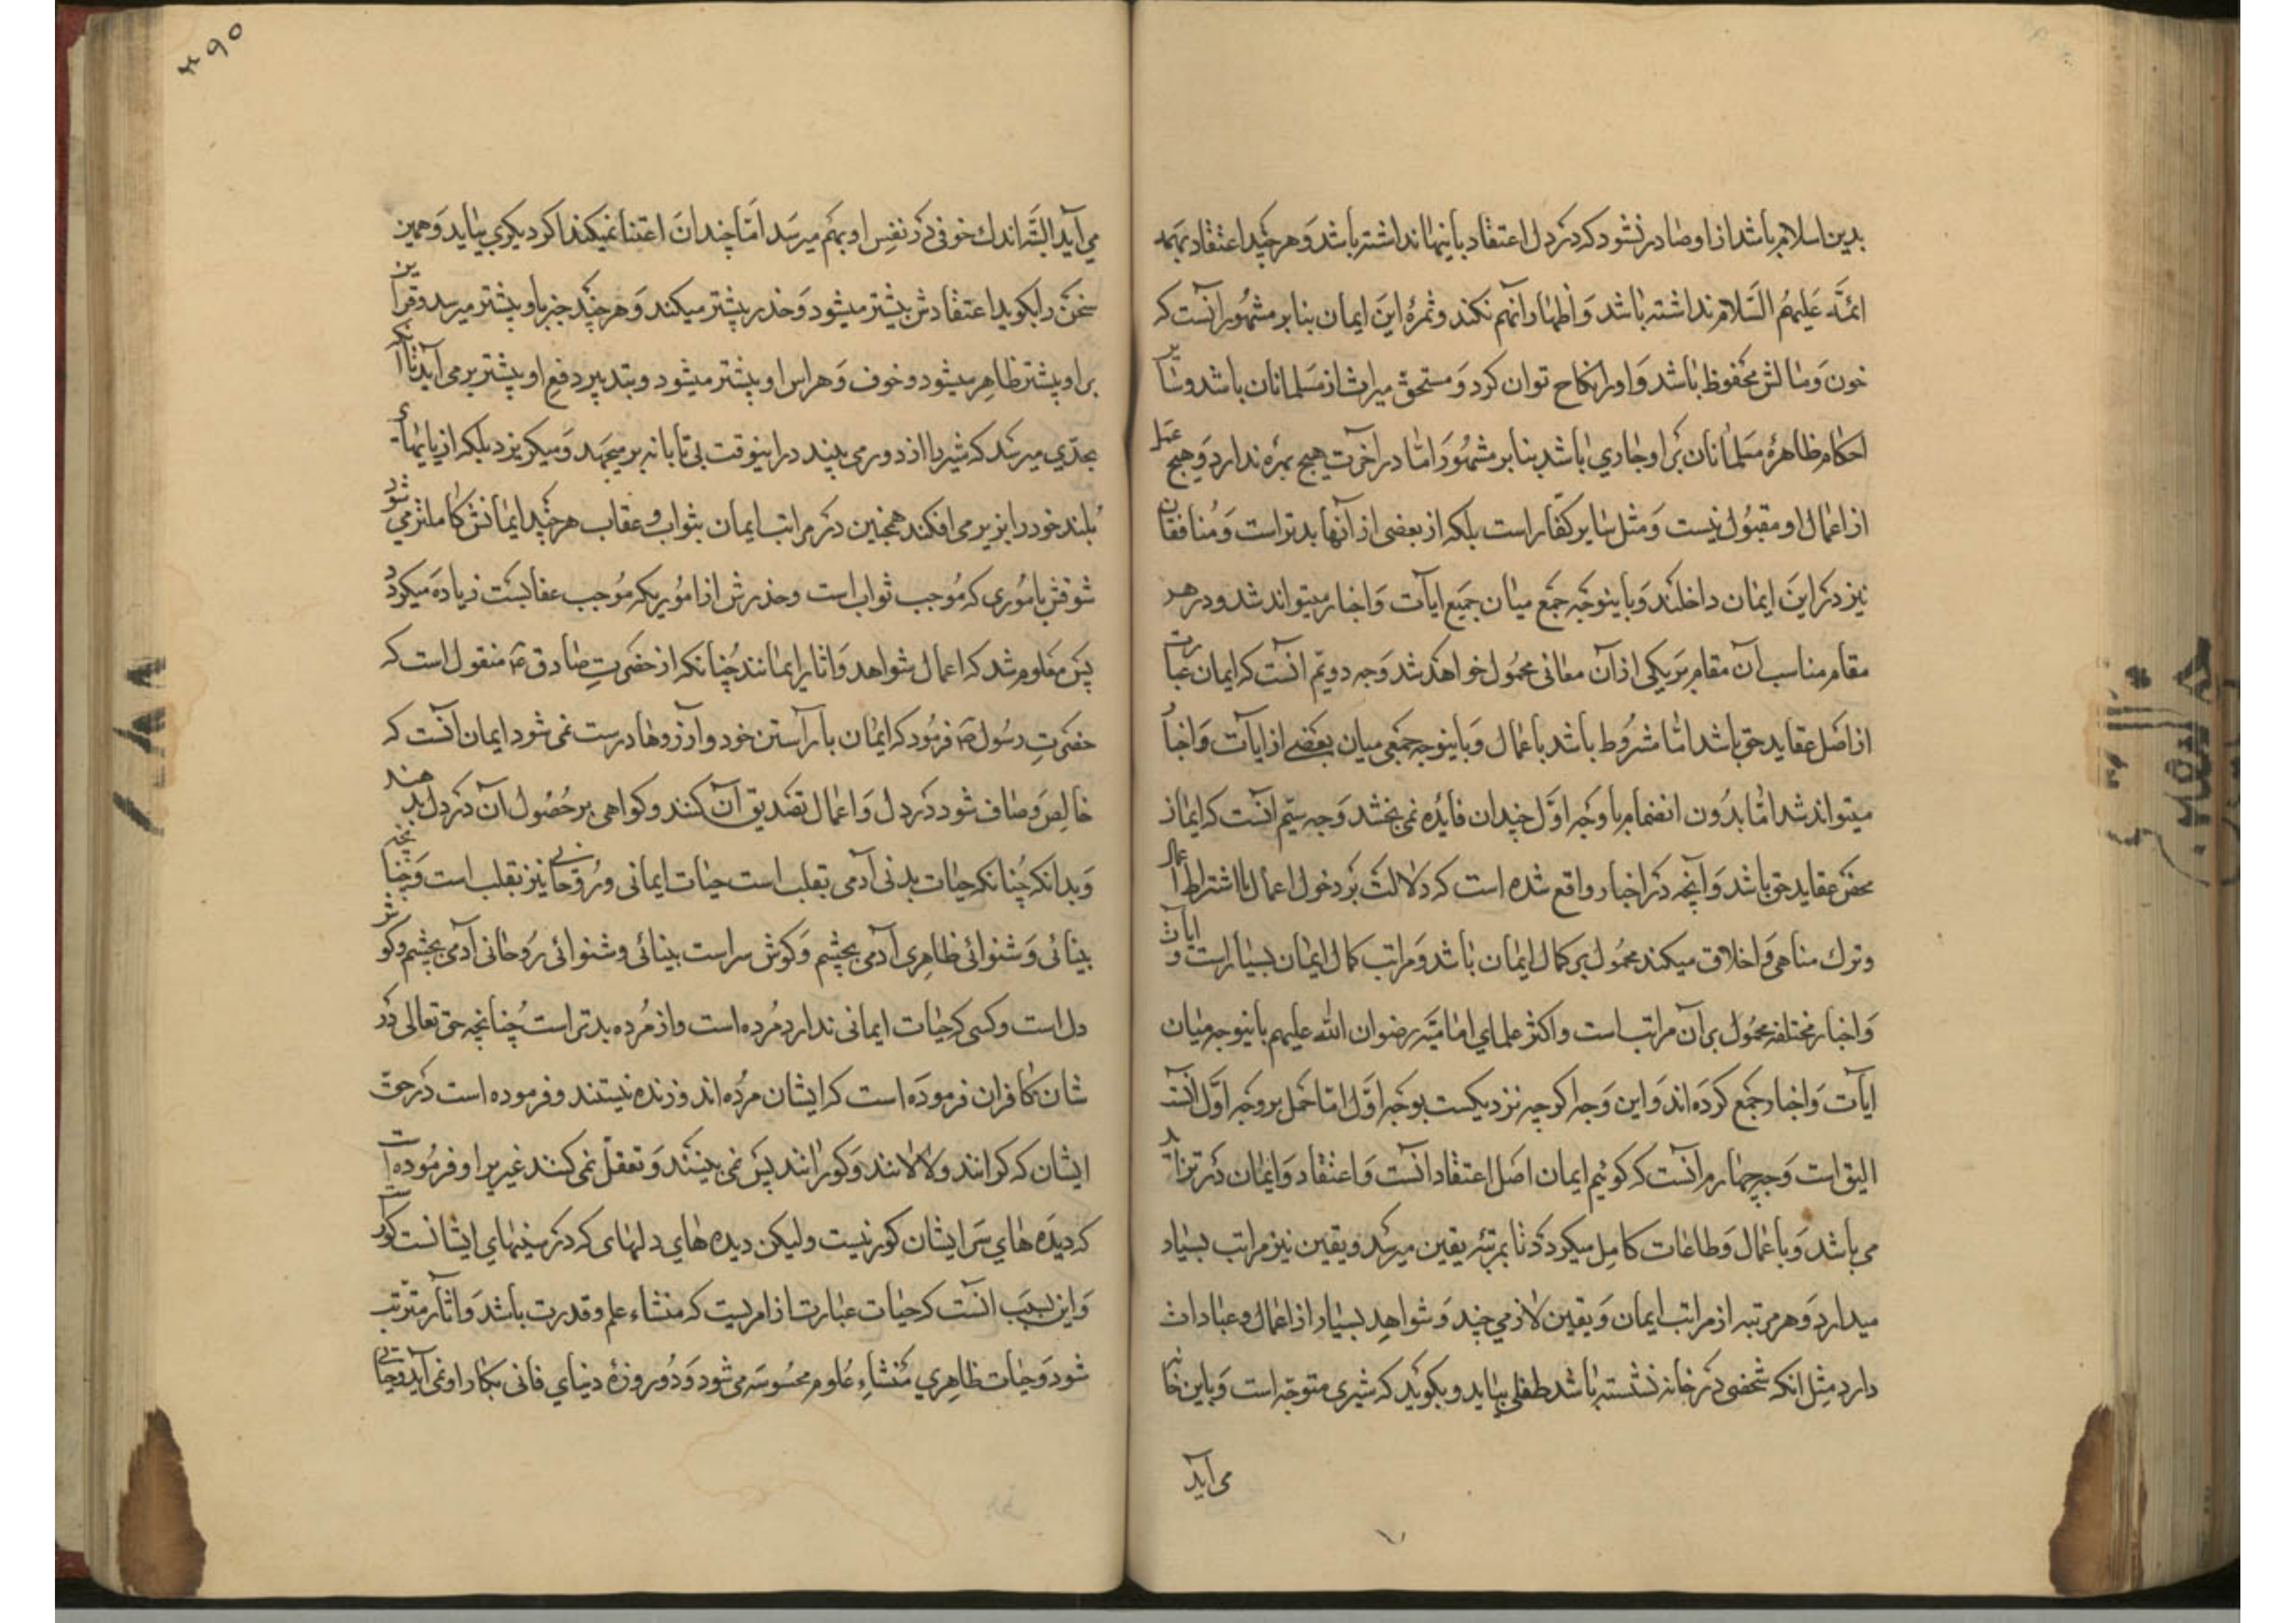 بدین اسلام باشد از او صادر نشود که در دل اعتقاد باینها نداشته باشد و هر چند اعتقاد بهمه
ائمّه علیهم السّلام نداشته باشد و اظهار آنهم نکند و ثمرهٔ این ایمان بنا بر مشهور آنست که
خون و مالش محفوظ باشد و او را نکاح توان کرد و مستحق میراث از مسلمانان باشد و سایر
احکام ظاهرهٔ مسلمانان بر او جاری باشد بنا بر مشهور و امّا در آخرت هیچ بهره ندارد و هیچ عمل
از اعمال او مقبول نیست و مثل سایر کفّار است بلکه از بعضی از آنها بدتر است و منافقان
نیز در این ایمان داخلند و باینوجه جمع میان جمیع ایآت و اخبار میتواند شد و در هر
مقام مناسب آن مقام بر یکی از آن معانی محمول خواهد شد وجه دویّم آنست که ایمان عبارت
از اصل عقاید حق باشد امّا مشروط باشد باعمال و باینوجه جمعی میان بعضی از ایات و اخبار
میتواند شد امّا بدون انضمام با وجه اوّل چندان فایده نمی بخشد وجه سیّم آنست که ایمان
محض عقاید حق باشد و آنچه در اخبار واقع شده است که دلالت بر دخول اعمال یا اشتراط اعمال
و ترک مناهی و اخلاق میکند محمول بر کمال ایمان باشد و مراتب کمال ایمان بسیار است و ایآت
و اخبار مختلفه محمول بر آن مراتب است و اکثر علمای امامیّه رضوان الله علیهم باینوجه میان
ایآت و اخبار جمع کرده اند و این وجه اگرچه نزدیکست بوجه اوّل امّا حمل بر وجه اوّل آنست
الیق است وجه چهارم آنست که گوئیم ایمان اصل اعتقاد آنست و اعتقاد و ایمان در تزاید
می باشد و باعمال و طاعات کامل میکردد تا بمرتبه یقین میرسد و یقین نیز مراتب بسیار
میدارد و هر مرتبه از مراتب ایمان و یقین لازمی چند و شواهد بسیار از اعمال و عبادات
دارد مثل آنکه شخصی در خانه نشسته باشد طفلی بیاید و بگوید که شیری متوجّه است و باین خانه
می آید
۳۹۵
می آید البتّه اندک خوفی در نفس او بهم میرسد امّا چندان اعتنا نمیکند اگر دیگری بیاید و همین
سخن را بگوید اعتقادش بیشتر میشود و حذر بیشتر میکند و هر چند خبر باو بیشتر میرسد و قراین
بر او بیشتر ظاهر میشود و خوف و هراس او بیشتر میشود و بتدبیر دفع او بیشتر بر می آید تا آنکه
بحدّی میرسد که شیر را از دور می بیند در اینوقت بی تابانه بر میجهد و میکریزد بلکه از پایهای
بلند خود را بزیر می افکند همچنین در مراتب ایمان بثواب و عقاب هر چند ایمانش کاملتر می شود
شوقش بامُوری که مُوجب ثواب است و حذرش از امُوریکه مُوجب عقابست زیاده میکردد
پس معلوم شد که اعمال شواهد و اثار ایمانند چُنانکه از حضرت صادق ع منقول است که
حضرت رسُول ص فرمُود که ایمان بآراستن خود و آرزوها درست نمی شود ایمان آنست که
خالص و صاف شود در دل و اعمال تصدیق آن کنند و کواهی بر حُصُول آن در دل بدهند
و بدانکه چُنانکه حیات بدنی آدمی بقلب است حیات ایمانی و رُوحانی نیز بقلب است و چنانچه
بینائی و شنوائی ظاهری آدمی بچشم و کوش سر است بینائی و شنوائی رُوحانی آدمی بچشم و کوش
دل است و کسی که حیات ایمانی ندارد مُرده است و از مُرده بدتر است چُنانچه حق تعالی در
شان کافران فرموده است که ایشان مُرده اند و زنده نیستند و فرموده است در حق
ایشان که کرانند و لالانند و کورانند پس نمی بینند و تعقّل نمی کنند غیر برا و فرمُوده است
که دیده های سَر ایشان کور نیست ولیکن دیده های دلهای که در سینهای ایشانست کور است
و این بسبب آنست که حیات عبارت از امریست که منشاء علم و قدرت باشد و اثار مترتب
شود و حیات ظاهری منشاء عُلوم محسُوسه می شود و دُو روزهٔ دنیای فانی بکار او نمی آید و حیاتی